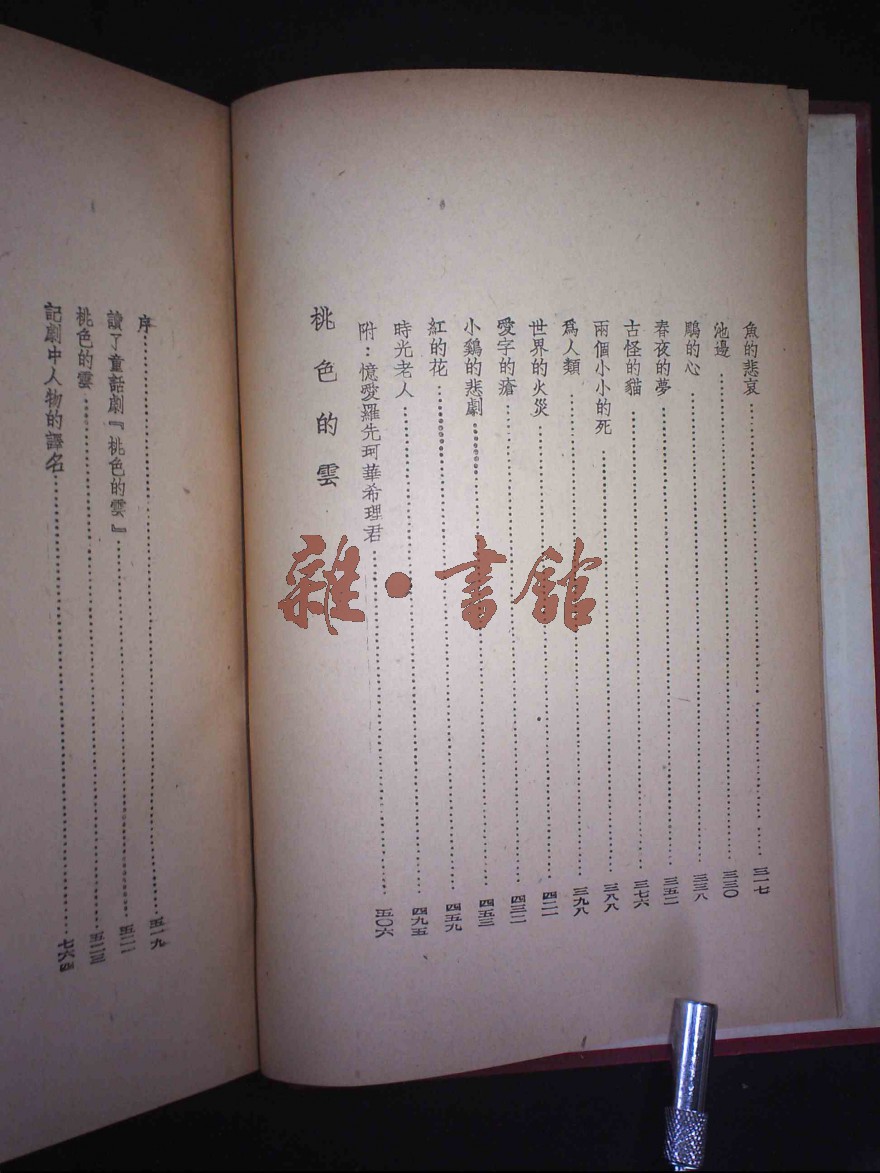 魚的悲哀……三一七
池邊……三三〇
鵰的心……三三八
春夜的夢……三五二
古怪的貓……三七六
兩個小小的死……三八八
爲人類……三九八
世界的火災……四二一
愛字的瘡……四三二
小鷄的悲劇……四五三
紅的花……四五九
時光老人……四九五
附：憶愛羅先珂華希理君……五〇六
桃色的雲
序……五一九
讀了童話劇『桃色的雲』……五二一
桃色的雲……五二三
記劇中人物的譯名……七六五
雜·書館